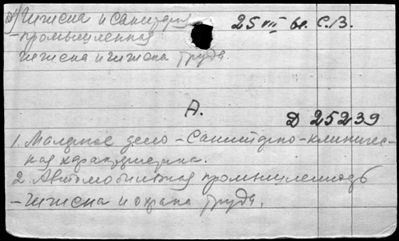 а) Гигиена и санитария
25 VIII 61. С.В.
-промышленная
гигиена и гигиена труда.
А.
Д 25239
1. Малярное дело - Санитарно-клиничес-
кая характеристика.
2. Автомобильная промышленность
- Гигиена и охрана труда.